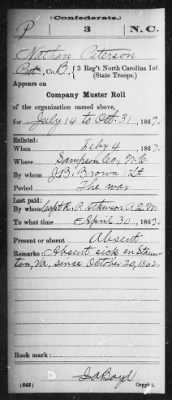 (Confederate.)
P 3 N.C.
Nathan Peterson
Pvt., Co. D, 3 Reg't North Carolina Inf.
(State Troops.)
Appears on
Company Muster Roll
of the organization named above,
for July 14 to Oct. 31, 1862.
Enlisted:
When Feby 4, 186
Where Sampson Co, N.C.
By whom J.B. Brown Lt
Period The war
Last paid:
By whom Capt R.A. Stevenson A.Q.M
To what time April 30, 1862.
Present or absent Absent
Remarks: Absent sick in Staun-
ton, Va, since October 20, 1862
Book mark:
(642) Copyist.